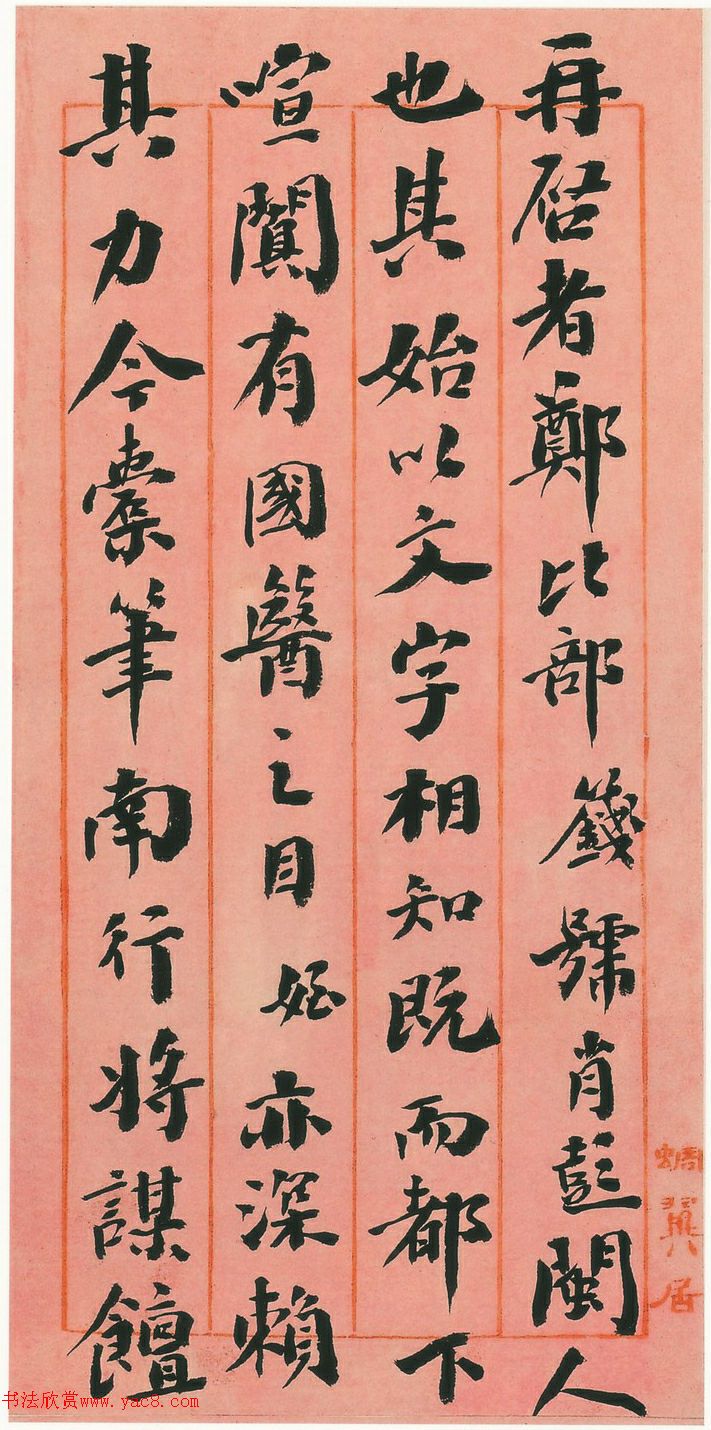 再启者鄭比部籛號肖彭閩人
也其始以文字相知既而都下
喧闐有國醫之目姪亦深賴
其力今橐筆南行將謀饘
蜩翼居
书法欣赏www.yac8.com